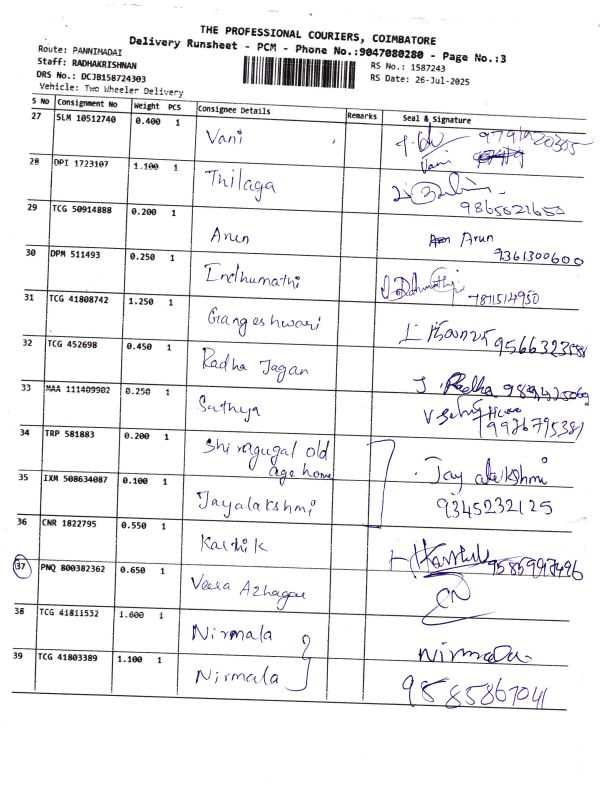 THE PROFESSIONAL COURIERS, COIMBATORE
Delivery Runsheet - PCM - Phone No.:9047080280 - Page No.:3
Route: PANNIMADAI
Staff: RADHAKRISHNAN
RS No.: 1587243
DRS No.: DCJB158724303
RS Date: 26-Jul-2025
Vehicle: Two Wheeler Delivery
S No Consignment No Weight PCS Consignee Details Remarks Seal & Signature
27 SLM 10512740 0.400 1 Vani
Vani
28 DPI 1723107 1.100 1 Thilaga
9865821650
29 TCG 50914888 0.200 1 Arun Arun
9361300600
30 DPM 511493 0.250 1 Indhumathi
7871514950
31 TCG 41808742 1.250 1 Gangeshwari
32 TCG 452698 0.450 1 Radha Jagan J. Radha
33 MAA 111409902 0.250 1 Sathya
9976795381
34 TRP 581883 0.200 1 Shiragugal old
age home
Jayalakshmi
35 IXM 508634087 0.100 1 Jayalakshmi 9345232125
36 CNR 1822795 0.550 1 Karthik
37 PNQ 800382362 0.650 1 Veera Azhagar
38 TCG 41811532 1.600 1 Nirmala Nirmala
39 TCG 41803389 1.100 1 Nirmala 9585867041